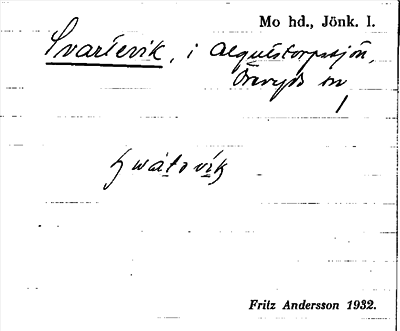 Mo hd., Jönk. l.
Svartevik, i Algustorpasjön,
Öreryds sn
Fritz Andersson 1932.